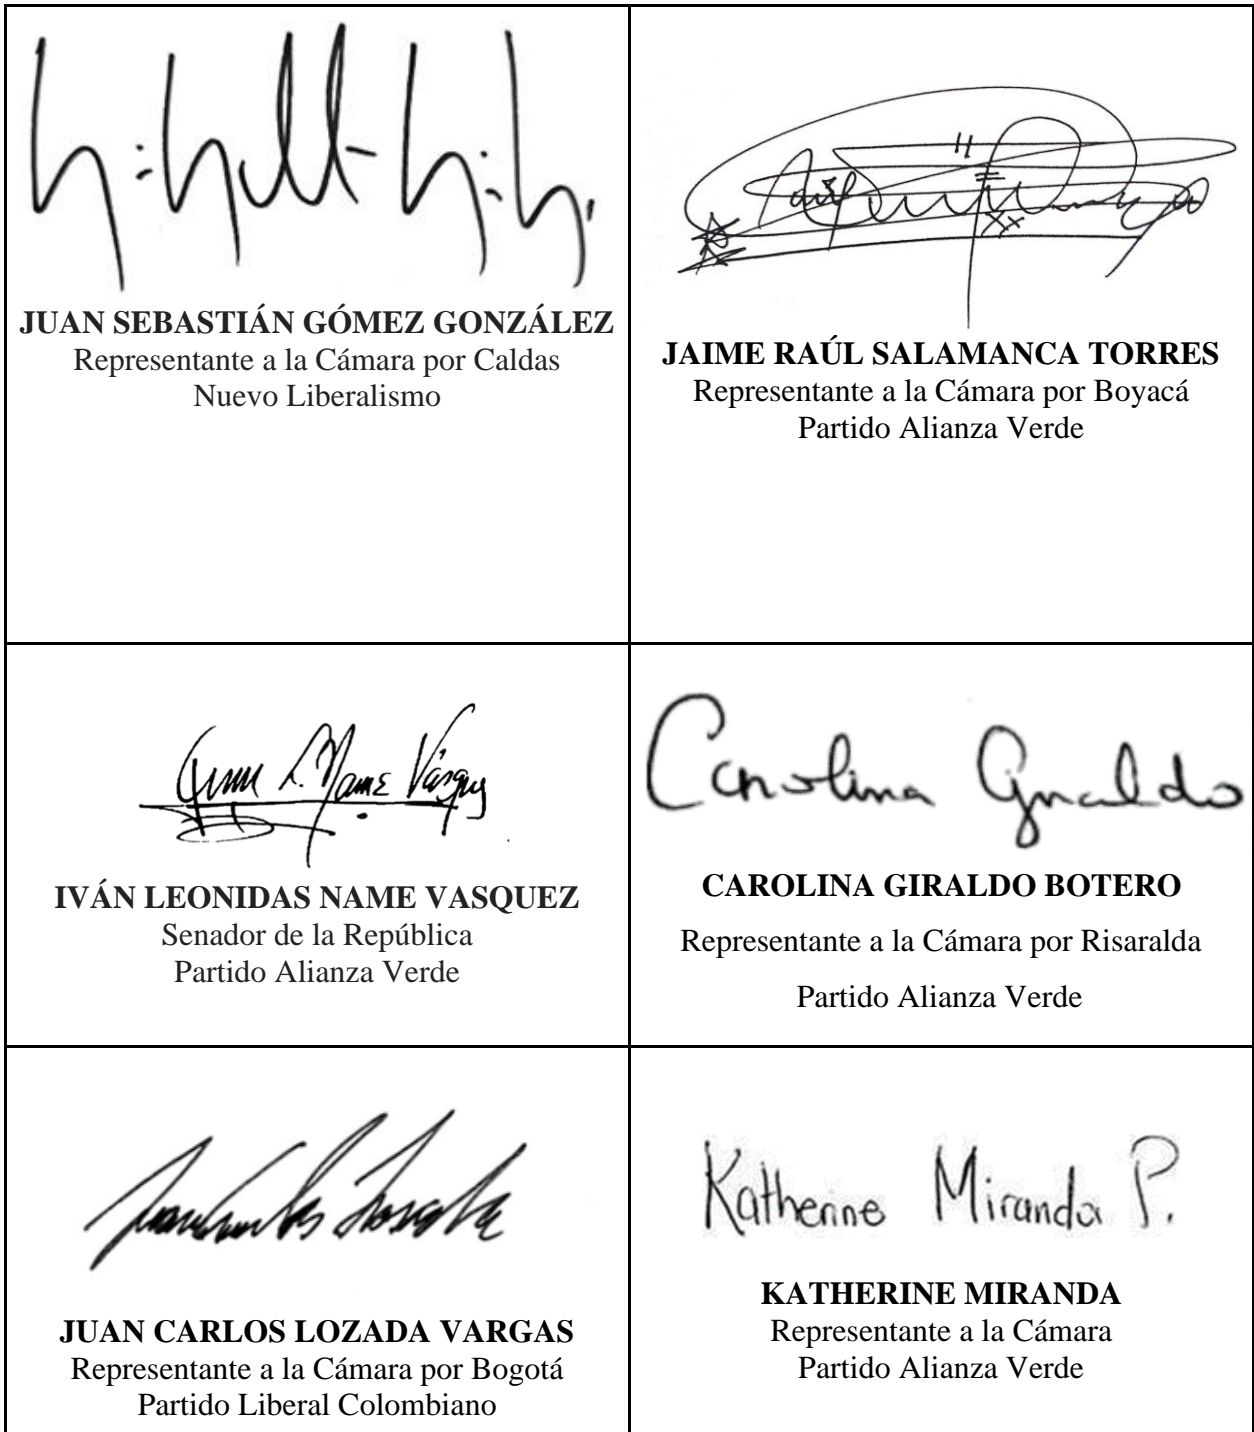 JUAN SEBASTIÁN GÓMEZ GONZÁLEZ
Representante a la Cámara por Caldas
Nuevo Liberalismo
JAIME RAÚL SALAMANCA TORRES
Representante a la Cámara por Boyacá
Partido Alianza Verde
IVÁN LEONIDAS NAME VASQUEZ
Senador de la República
Partido Alianza Verde
Carolina Giraldo
CAROLINA GIRALDO BOTERO
Representante a la Cámara por Risaralda
Partido Alianza Verde
JUAN CARLOS LOZADA VARGAS
Representante a la Cámara por Bogotá
Partido Liberal Colombiano
Katherine Miranda P.
KATHERINE MIRANDA
Representante a la Cámara
Partido Alianza Verde